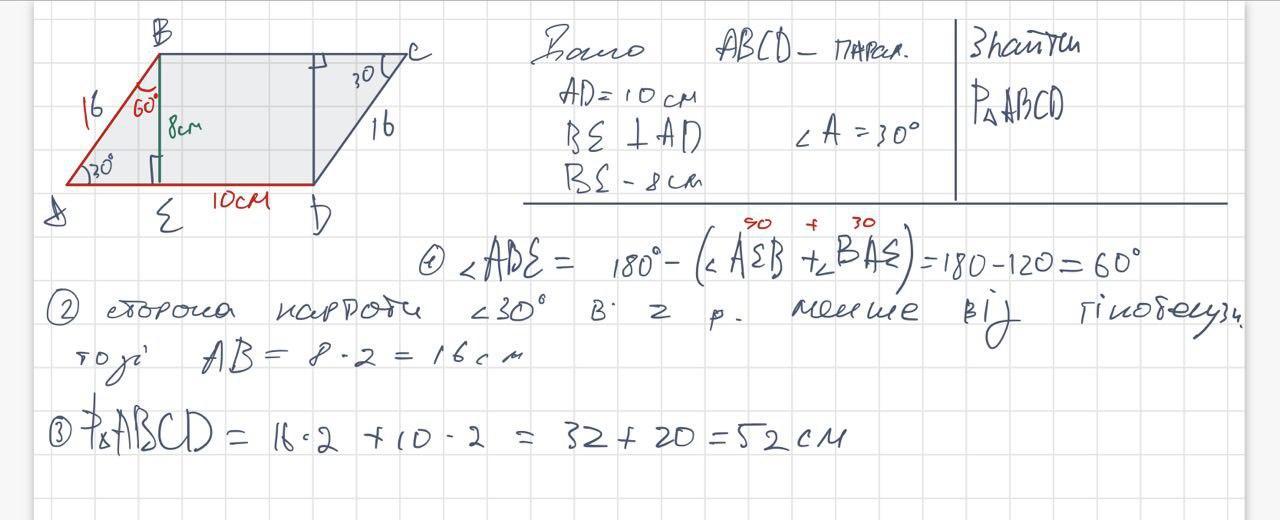 B
C
30
16
60°
8см
16
30°
10см
A
E
D
Дано ABCD – парал.
AD = 10 см
BE ⊥ AD ∠A = 30°
BE – 8 см
Знайти
P△ABCD
90 + 30
① ∠ABE = 180° – (∠AEB + ∠BAE) = 180 – 120 = 60°
② сторона напроти ∠30° в 2 р. менше від гіпотенузи.
тоді AB = 8 · 2 = 16 см
③ P△ABCD = 16 · 2 + 10 · 2 = 32 + 20 = 52 см